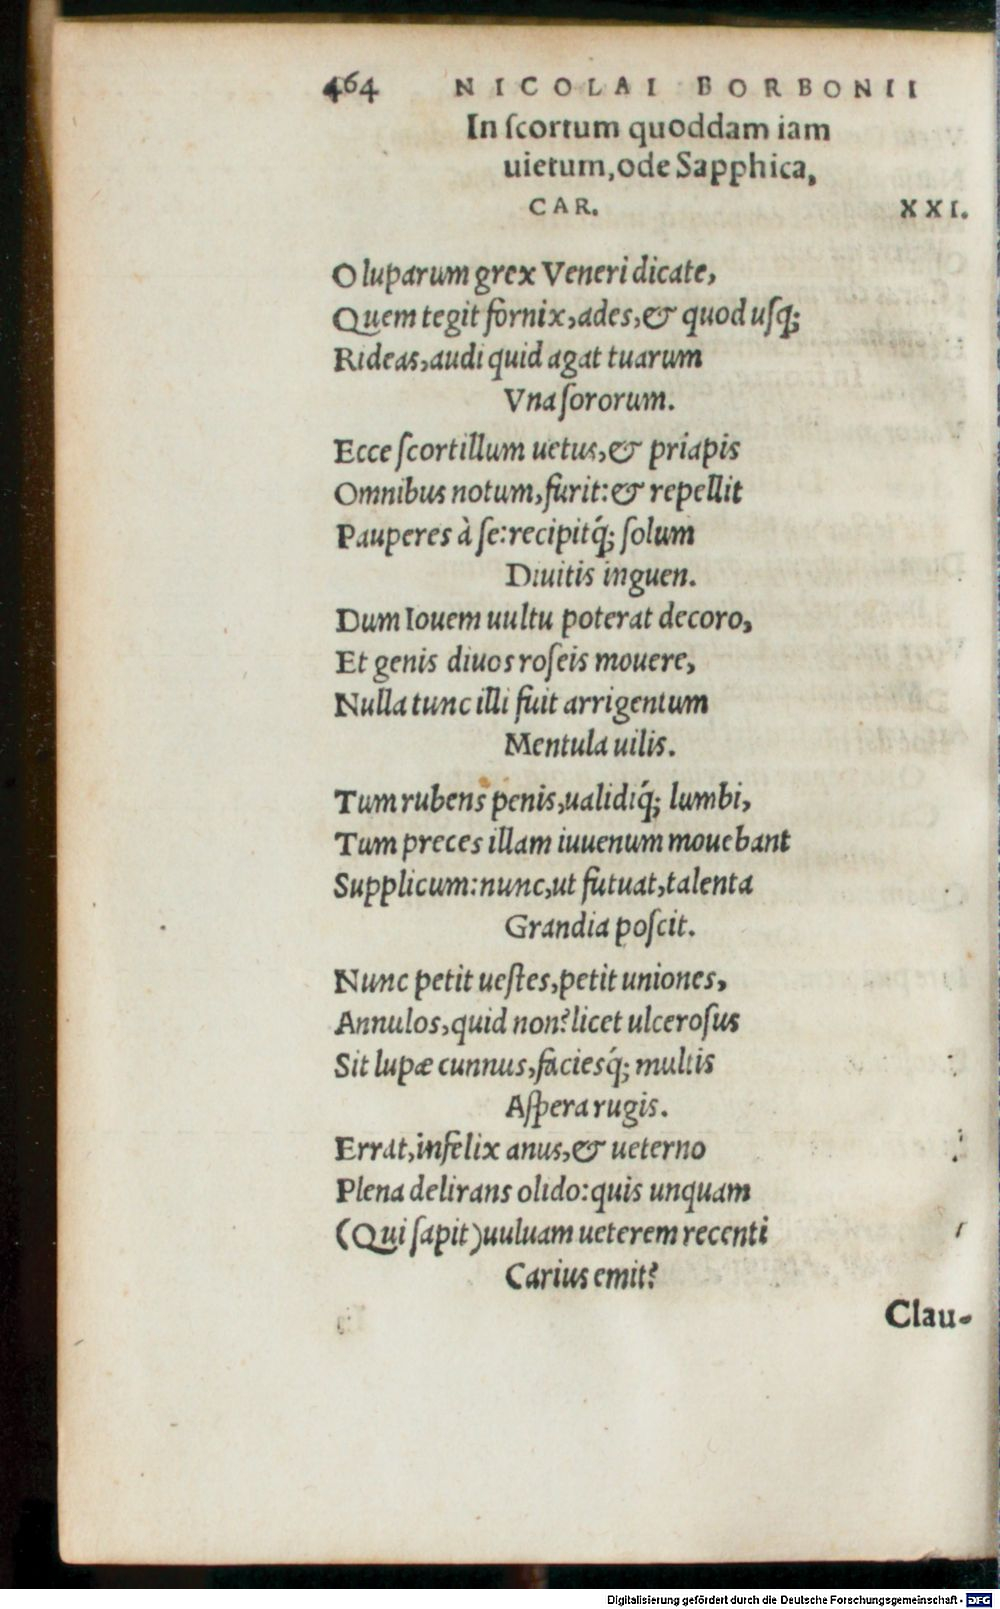 464 NICOLAI BORBONII
In ſcortum quoddam iam
uietum, ode Sapphica,
CAR. XXI.
O luparum grex Veneri dicate,
Quem tegit fornix, ades, & quod uſq;
Rideas, audi quid agat tuarum
Vna ſororum.
Ecce ſcortillum uetus, & priapis
Omnibus notum, furit: & repellit
Pauperes à ſe: recipitq́; ſolum
Diuitis inguen.
Dum Iouem uultu poterat decoro,
Et genis diuos roſeis mouere,
Nulla tunc illi fuit arrigentum
Mentula uilis.
Tum rubens penis, ualidiq́; lumbi,
Tum preces illam iuuenum mouebant
Supplicum: nunc, ut futuat, talenta
Grandia poſcit.
Nunc petit ueſtes, petit uniones,
Annulos, quid non? licet ulceroſus
Sit lupæ cunnus, faciesq́; multis
Aſpera rugis.
Errat, infelix anus, & ueterno
Plena delirans olido: quis unquam
(Qui ſapit) uuluam ueterem recenti
Carius emit?
Clau-
Digitalisierung gefördert durch die Deutsche Forschungsgemeinschaft - DFG